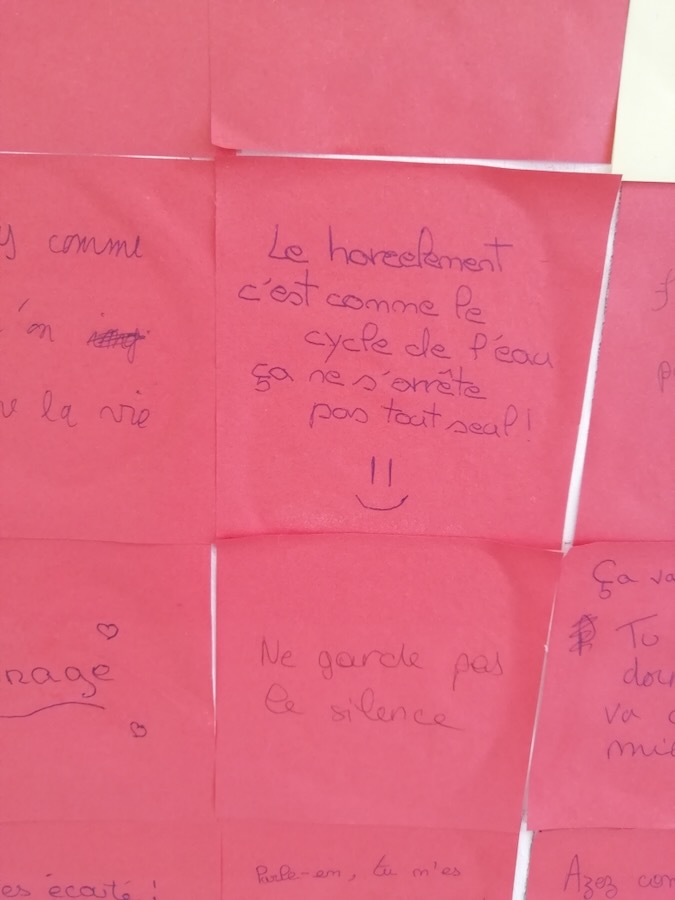 comme
la vie
Le harcelement
c'est comme le
cycle de l'eau
ça ne s'arrête
pas tout seul !
Ne garde pas
le silence
Ça va
Tu
va
Parle-en, tu m'es
écouté !